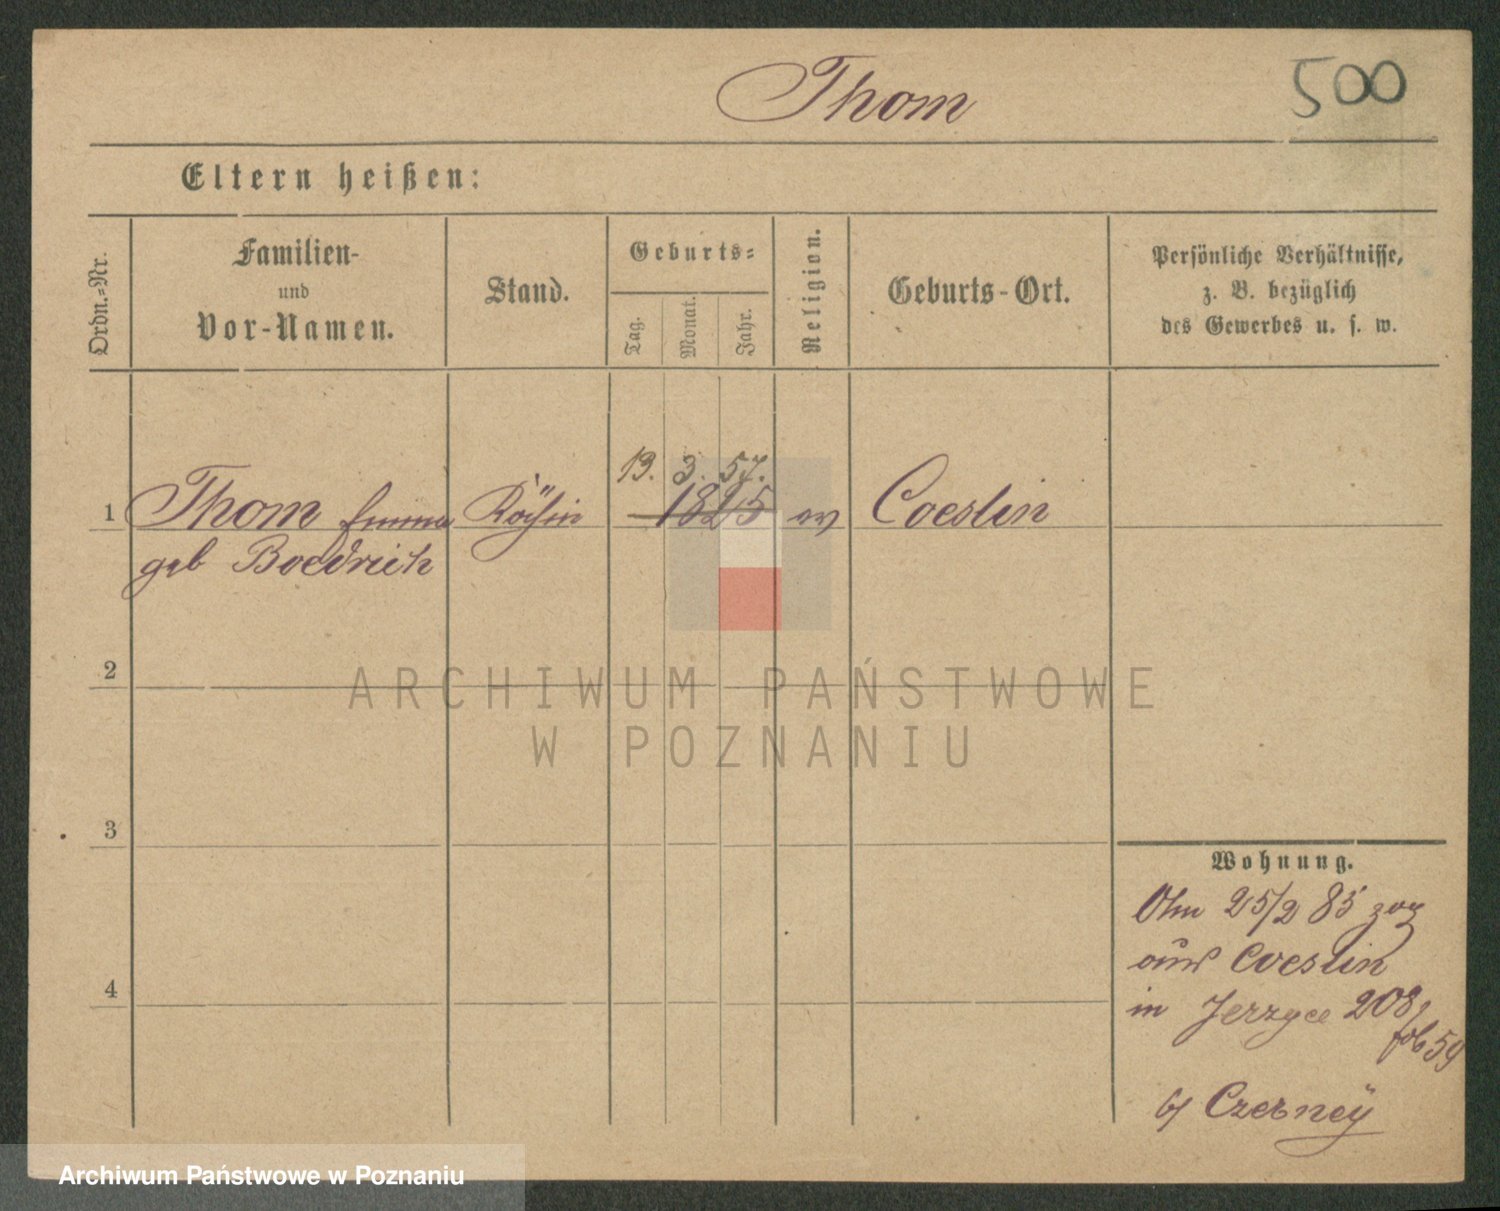 Thom 500
Eltern heißen:
Ordn.-Nr.
Familien-
und
Vor-Namen.
Stand.
Geburts-
Tag.
Monat.
Jahr.
Religion.
Geburts-Ort.
Persönliche Verhältnisse,
z. B. bezüglich
des Gewerbes u. s. w.
13. 3. 57.
1 Thom Emma Köchin 1825 ev Coeslin
geb Boedrich
2
ARCHIWUM PAŃSTWOWE
W POZNANIU
3
Wohnung.
25/2 85 zog
aus Coeslin
4
in Jerzyce 208/
fol 59
by Czerney
Archiwum Państwowe w Poznaniu